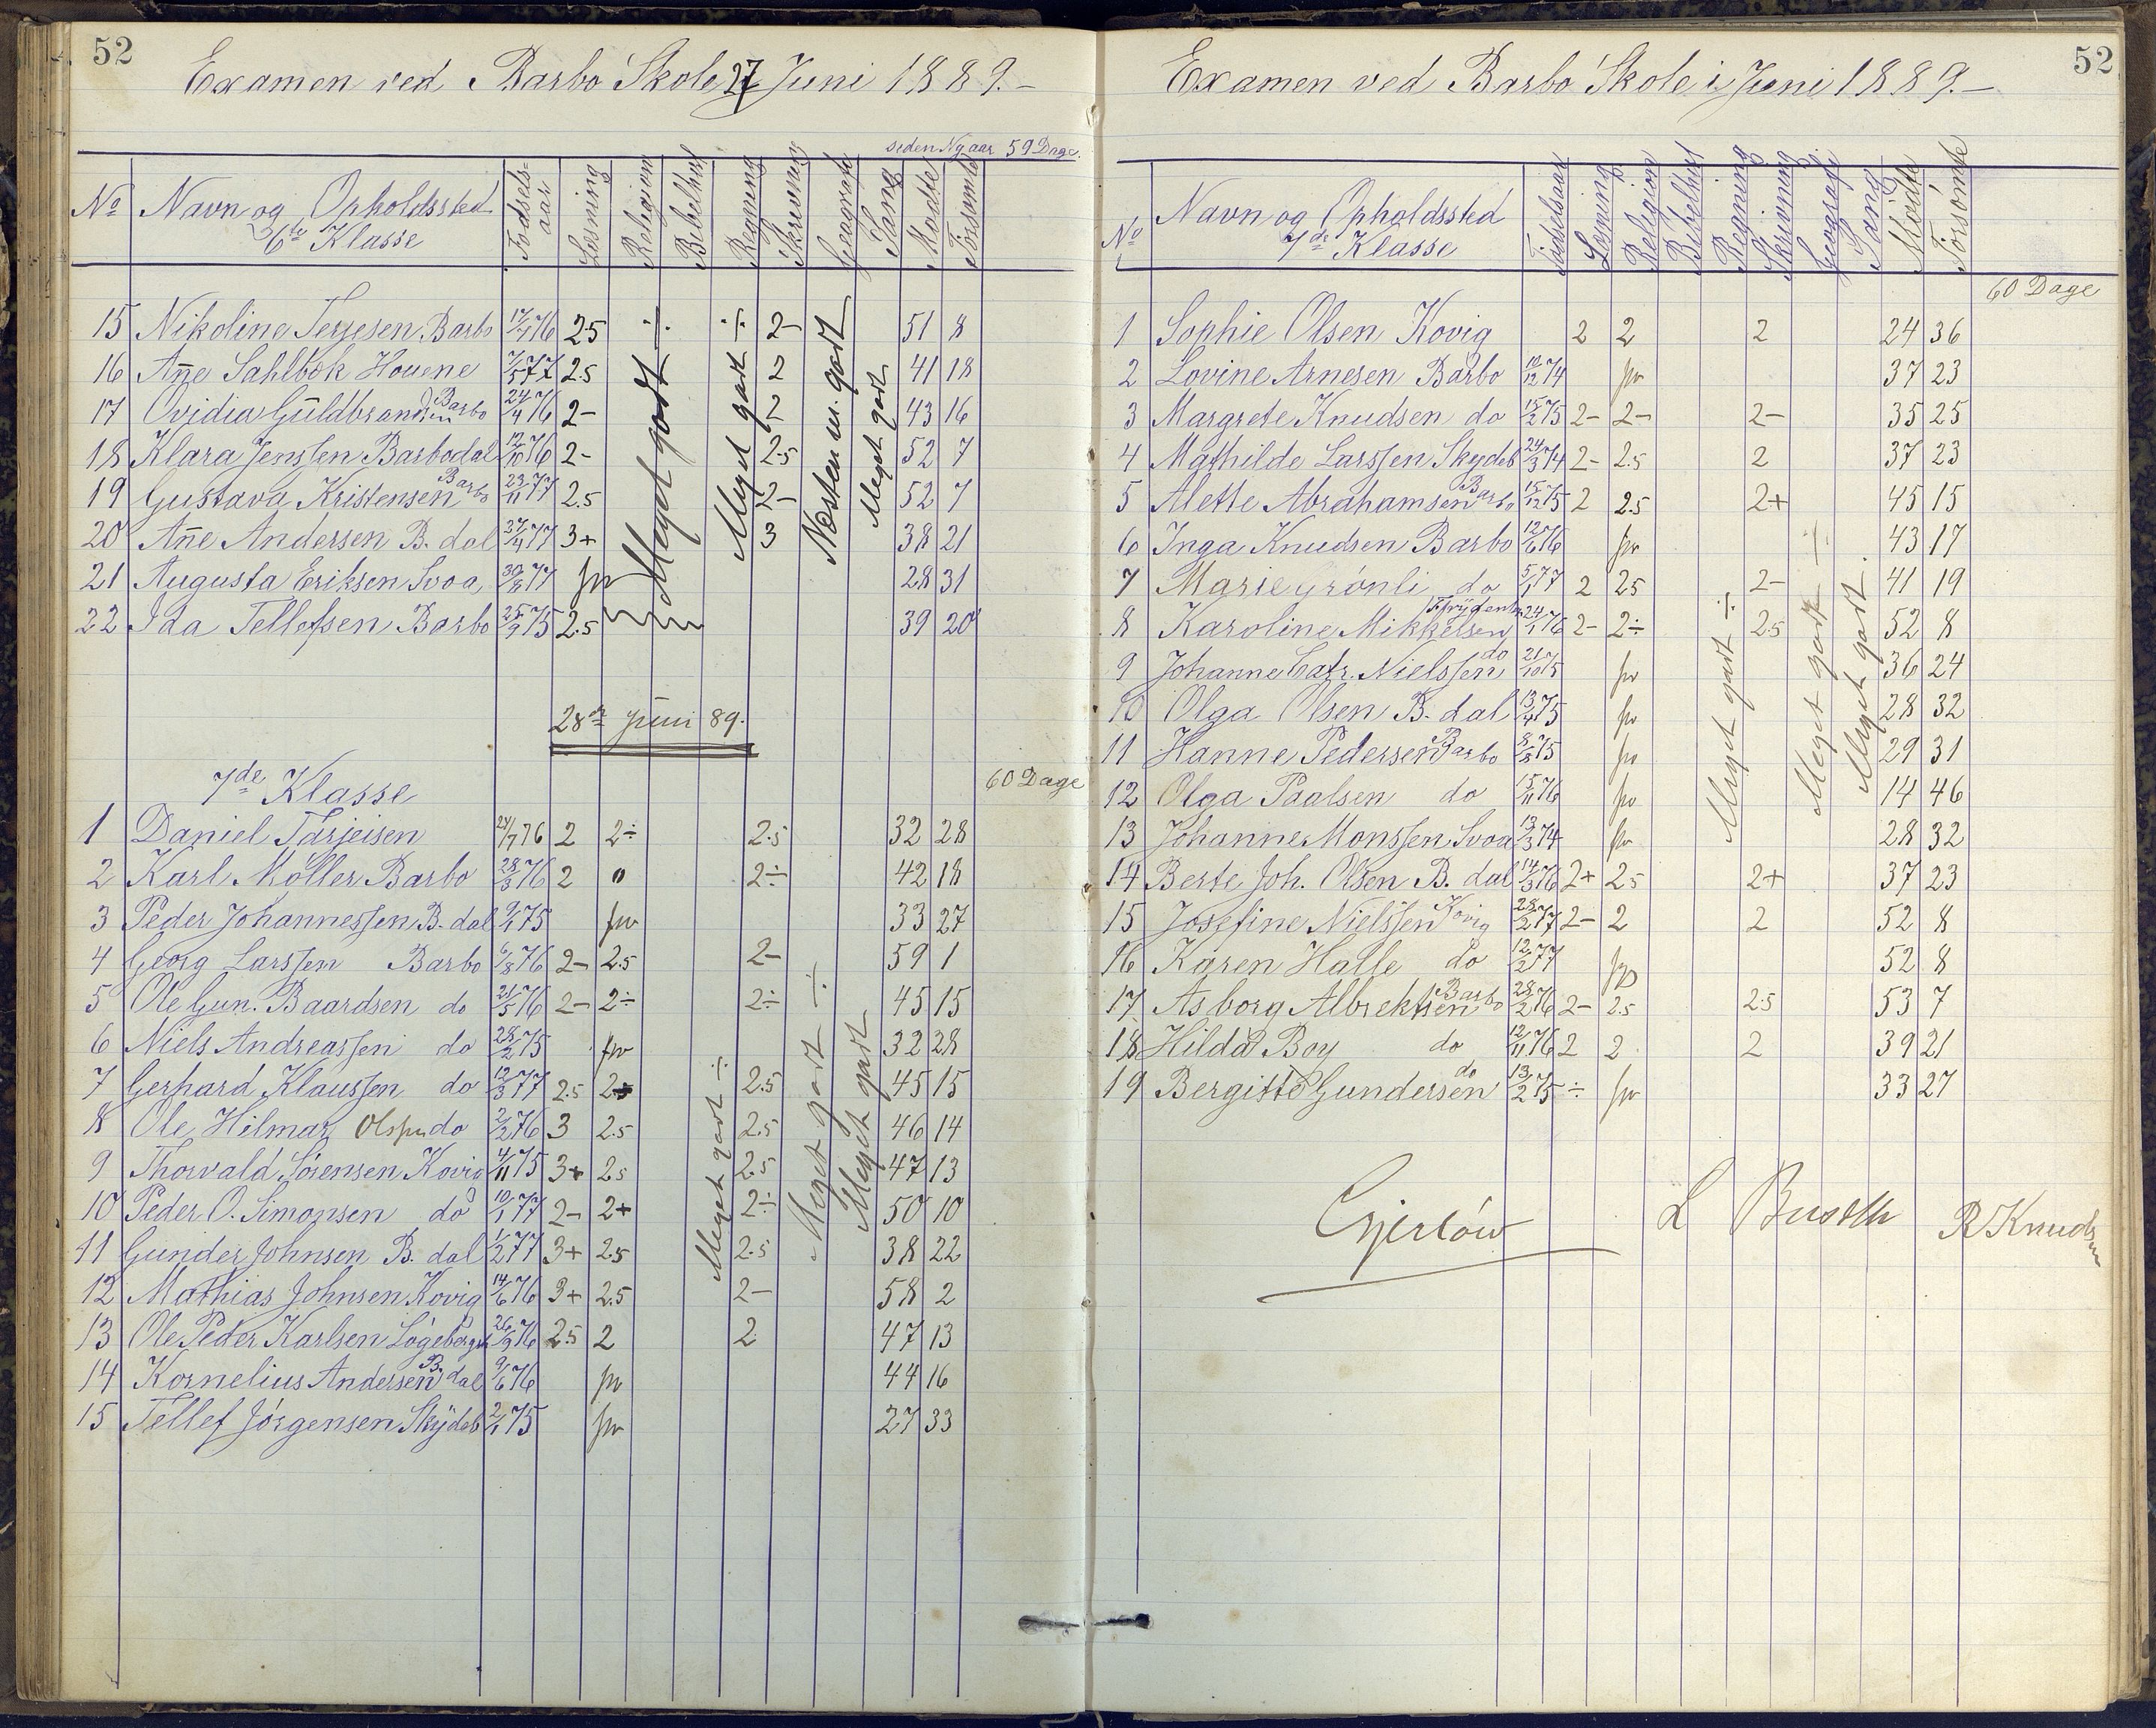 52
Examen ved Barbo Skole 27 Juni 1889.-
siden Nyaar 59 Dage.
No Navn og Opholdssted 6te Klasse Fødselsaar Læsning Religion Bibelhist Regning Skrivning Geografi Sang Mødte Forsømte
15 Nikoline Terjesen Barbo 17/7 76 2.5 2- 51 8
16 Ane Sahlbok Houene 7/5 77 2.5 2 41 18
17 Ovidia Guldbrandsen Barbo 24/4 76 2- 2 43 16
18 Klara Jenssen Barbodal 12/10 76 2- 2.5 52 7
19 Gustava Kristensen Barbo 23/11 77 2.5 2- 52 7
20 Ane Andersen B. dal 77 3+ 3 38 21
21 Augusta Eriksen Svoa 30/8 77 28 31
22 Ida Tellefsen Barbo 25/9 75 2.5 39 20
Meget godt ÷
Meget godt ÷
Næsten m. godt
Meget godt
28de Juni 89.
7de Klasse
60 Dage
1 Daniel Tarjeisen 24/7 76 2 2÷ 2.5 32 28
2 Karl Møller Barbo 28/3 76 2 0 2÷ 42 18
3 Peder Johannessen B. dal 9/1 75 33 27
4 Georg Larssen Barbo 6/8 76 2- 2.5 2- 59 1
5 Ole Gun. Baardsen do 21/5 76 2- 2÷ 2÷ 45 15
6 Niels Andreassen do 28/2 75 32 28
7 Gerhard Klaussen do 12/3 77 2.5 2.5 45 15
8 Ole Hilmar Olsen do 2/2 76 3 2.5 2.5 46 14
9 Thorvald Sørensen Kovig 4/11 75 3+ 2.5 2.5 47 13
10 Peder O. Simonsen do 10/1 77 2- 2+ 2÷ 50 10
11 Gunder Johnsen B. dal 1/2 77 3+ 2.5 2.5 38 22
12 Mathias Johnsen Kovig 14/6 76 3+ 2.5 2- 58 2
13 Ole Peder Karlsen 26/9 76 2.5 2 2 47 13
14 Kornelius Andersen B. dal 9/6 76 44 16
15 Tellef Jørgensen Skydeb 2/1 75 27 33
Meget godt ÷
Meget godt ÷
Meget godt
52
Examen ved Barbo Skole i Juni 1889.-
No Navn og Opholdssted 7de Klasse Fødselsaar Læsning Religion Bibelhist Regning Skrivning Geografi Sang Mødte Forsømte
60 Dage
1 Sophie Olsen Kovig 2 2 2 24 36
2 Lovine Arnesen Barbo 10/12 74 37 23
3 Margrete Knudsen do 15/2 75 2- 2- 2- 35 25
4 Mathilde Larssen Skydeb 24/3 74 2- 2.5 2 37 23
5 Alette Abrahamsen Barbo 15/12 75 2 2.5 2+ 45 15
6 Inga Knudsen Barbo 12/6 76 43 17
7 Marie Grønli do 5/1 77 2 2.5 2- 41 19
8 Karoline Mikkelsen 24/1 76 2- 2÷ 2.5 52 8
9 Johanne Catr. Nielssen do 21/10 75 36 24
10 Olga Olsen B. dal 13/4 75 28 32
11 Hanne Pedersen Barbo 8/8 75 29 31
12 Olga Paalsen do 15/11 76 14 46
13 Johanne Monssen Svoa 13/3 74 28 32
14 Berte Joh. Olsen B. dal 14/3 76 2+ 2.5 2+ 37 23
15 Josefine Nielssen Kovig 28/2 77 2- 2 2 52 8
16 Karen Halle do 12/2 77 52 8
17 Asborg Albrektsen Barbo 28/2 76 2- 2.5 2.5 53 7
18 Hilda Boy do 12/11 76 2 2 2 39 21
19 Bergitte Gundersen do 13/2 75 ÷ 33 27
Meget godt ÷
Meget godt ÷
Meget godt.
Gjerløw L Busth R Knudsen